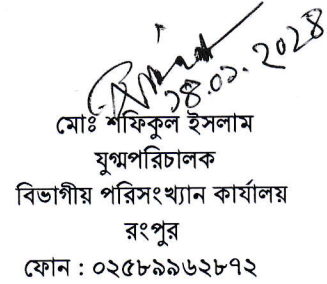 ১৪.০১.২০২৪
মোঃ শফিকুল ইসলাম
যুগ্মপরিচালক
বিভাগীয় পরিসংখ্যান কার্যালয়
রংপুর
ফোন : ০২৫৮৯৯৬২৮৭২